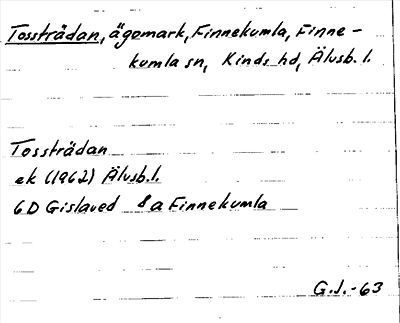 Tossträdan, ägomark, Finnekumla, Finne-
kumla sn, Kinds hd, Älvsb. l.
Tossträdan
ek (1962) Älvsb.l.
6D Gislaved 8a Finnekumla
G.J.-63